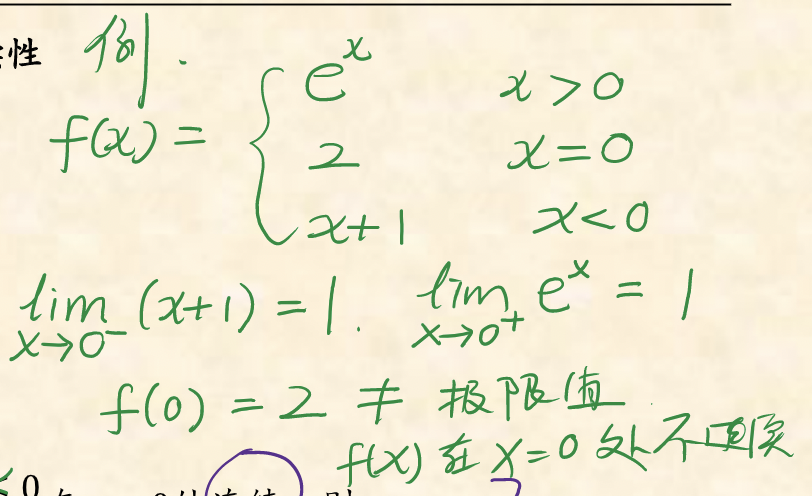 性 例.
f(x) = { e^x x > 0
2 x = 0
x+1 x < 0
lim x→0⁻ (x+1) = 1. lim x→0⁺ e^x = 1
f(0) = 2 ≠ 极限值
f(x) 在 x=0 处不连续
0